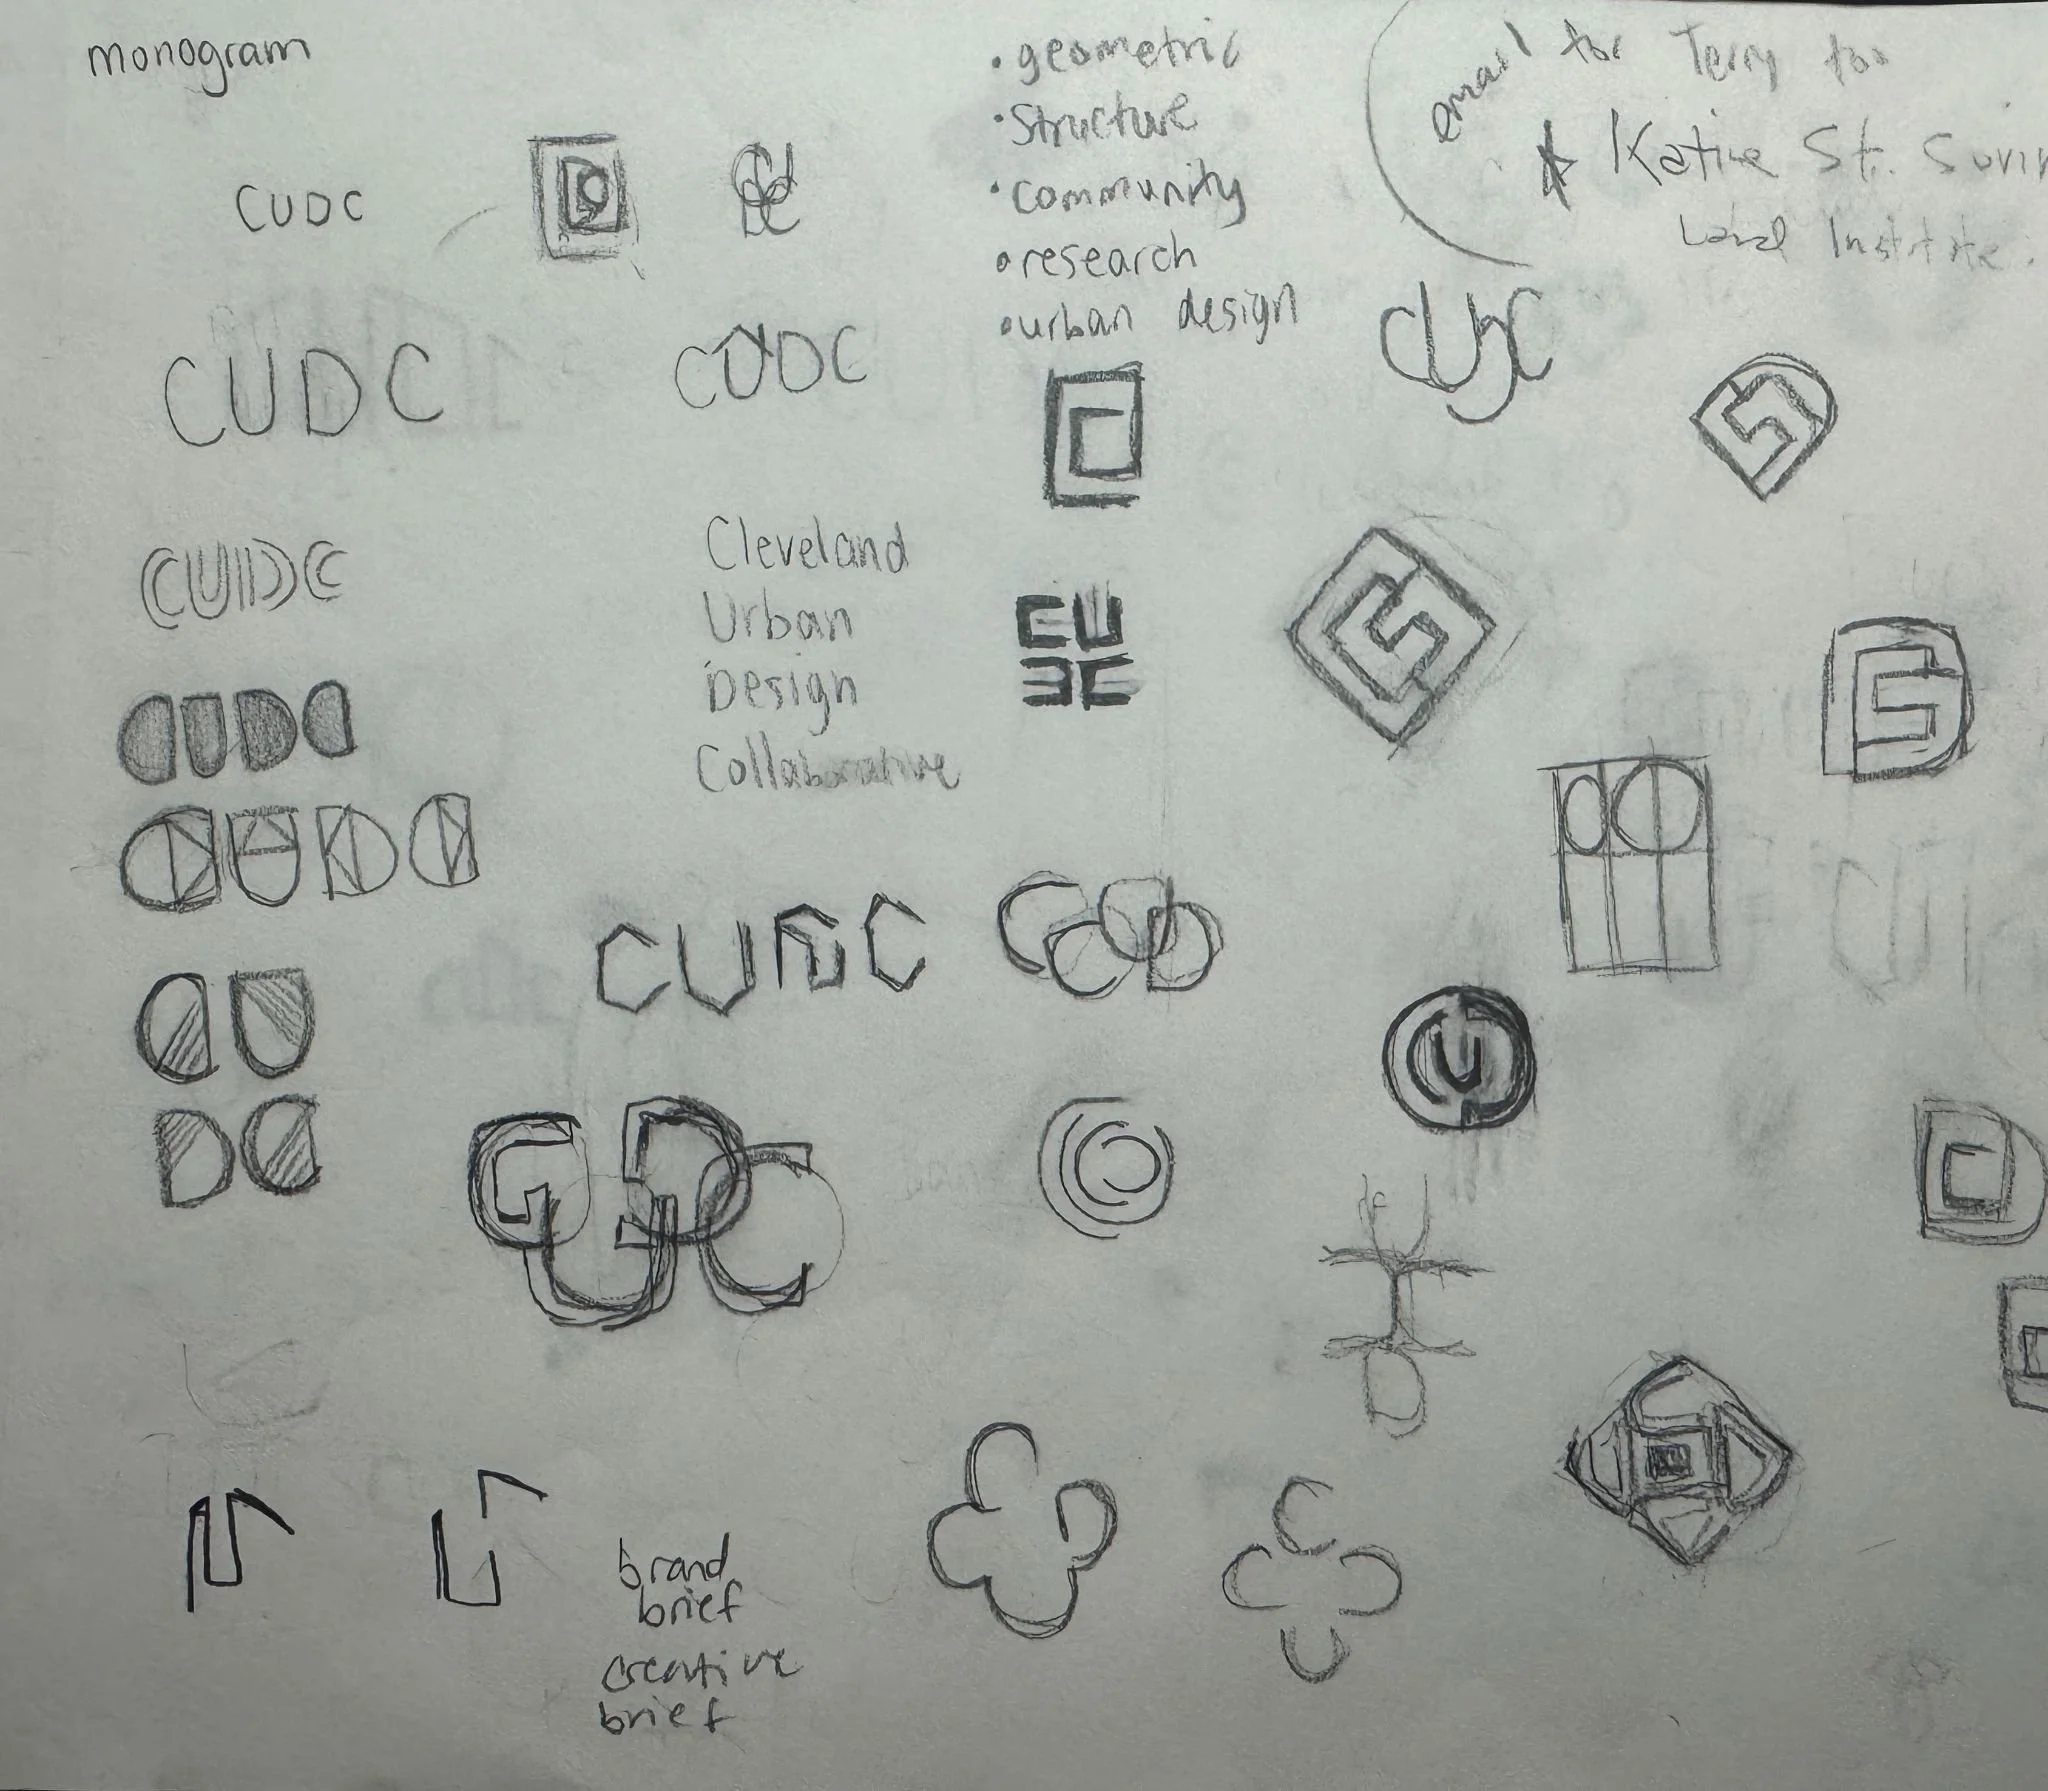 monogram
• geometric
• Structure
• community
• research
• urban design
email for Terry for
Katie St.
Institute
CUDC
CUDC
CUDC
CUDC
CUDC
Cleveland
Urban
Design
Collaborative
CU
DC
CUDC
CUDC
CU
DC
CUDC
brand
brief
creative
brief